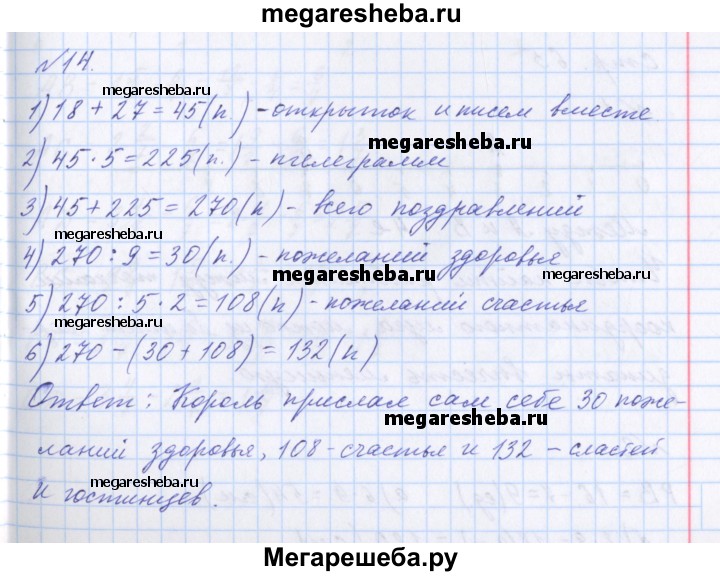 megaresheba.ru
№14.
megaresheba.ru
1) 18 + 27 = 45 (п.) - открыток и писем вместе
megaresheba.ru
2) 45 · 5 = 225 (п.) - телеграмм
3) 45 + 225 = 270 (п) - всего поздравлений
4) 270 : 9 = 30 (п.) - пожеланий здоровья
megaresheba.ru
megaresheba.ru
5) 270 : 5 · 2 = 108 (п) - пожеланий счастья
megaresheba.ru
6) 270 - (30 + 108) = 132 (п)
Ответ: Король прислал сам себе 30 поже-
megaresheba.ru
ланий здоровья, 108 - счастья и 132 - сластей
megaresheba.ru
и гостинцев.
Мегарешеба.ру